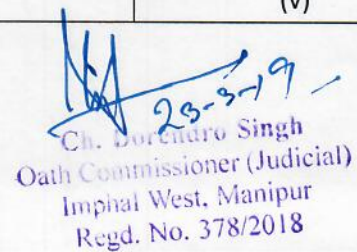 (v)
23-3-19
Ch. Dorendro Singh
Oath Commissioner (Judicial)
Imphal West, Manipur
Regd. No. 378/2018